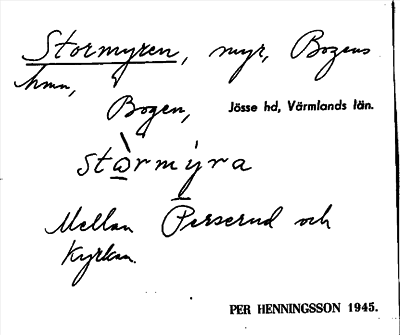 Stormyren, myr, Bogens
hmn,
Bogen, Jösse hd, Värmlands län.
stὼrmýra
Mellan Perserud och
Kyrkan.
PER HENNINGSSON 1945.